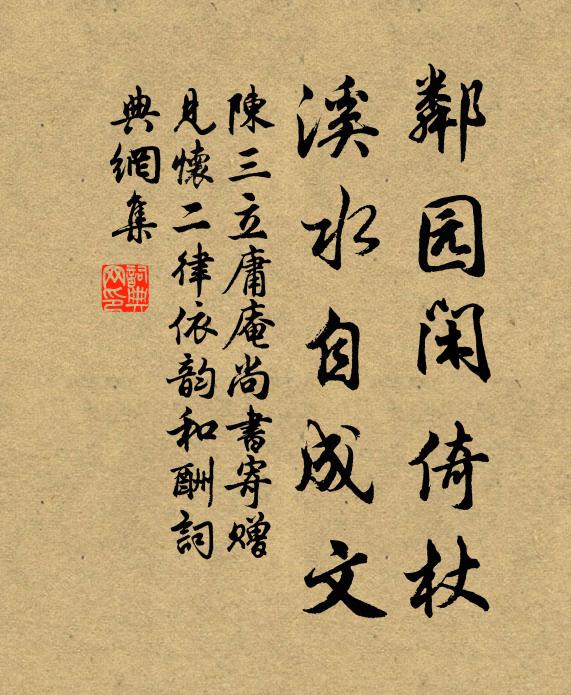 鄰园闲倚杖
溪水自成文
陳三立庸庵尚書寄贈
見懷二律依韵和酬詞
典網集
詞典网印